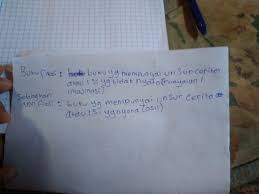 Buku Fiksi : buku yg mempunyai unsur cerita
atau isi yg tidak nyata (
Sedangkan
non Fiksi : buku yg mempunyai unsur cerita
atau isi yg nyata (asli)